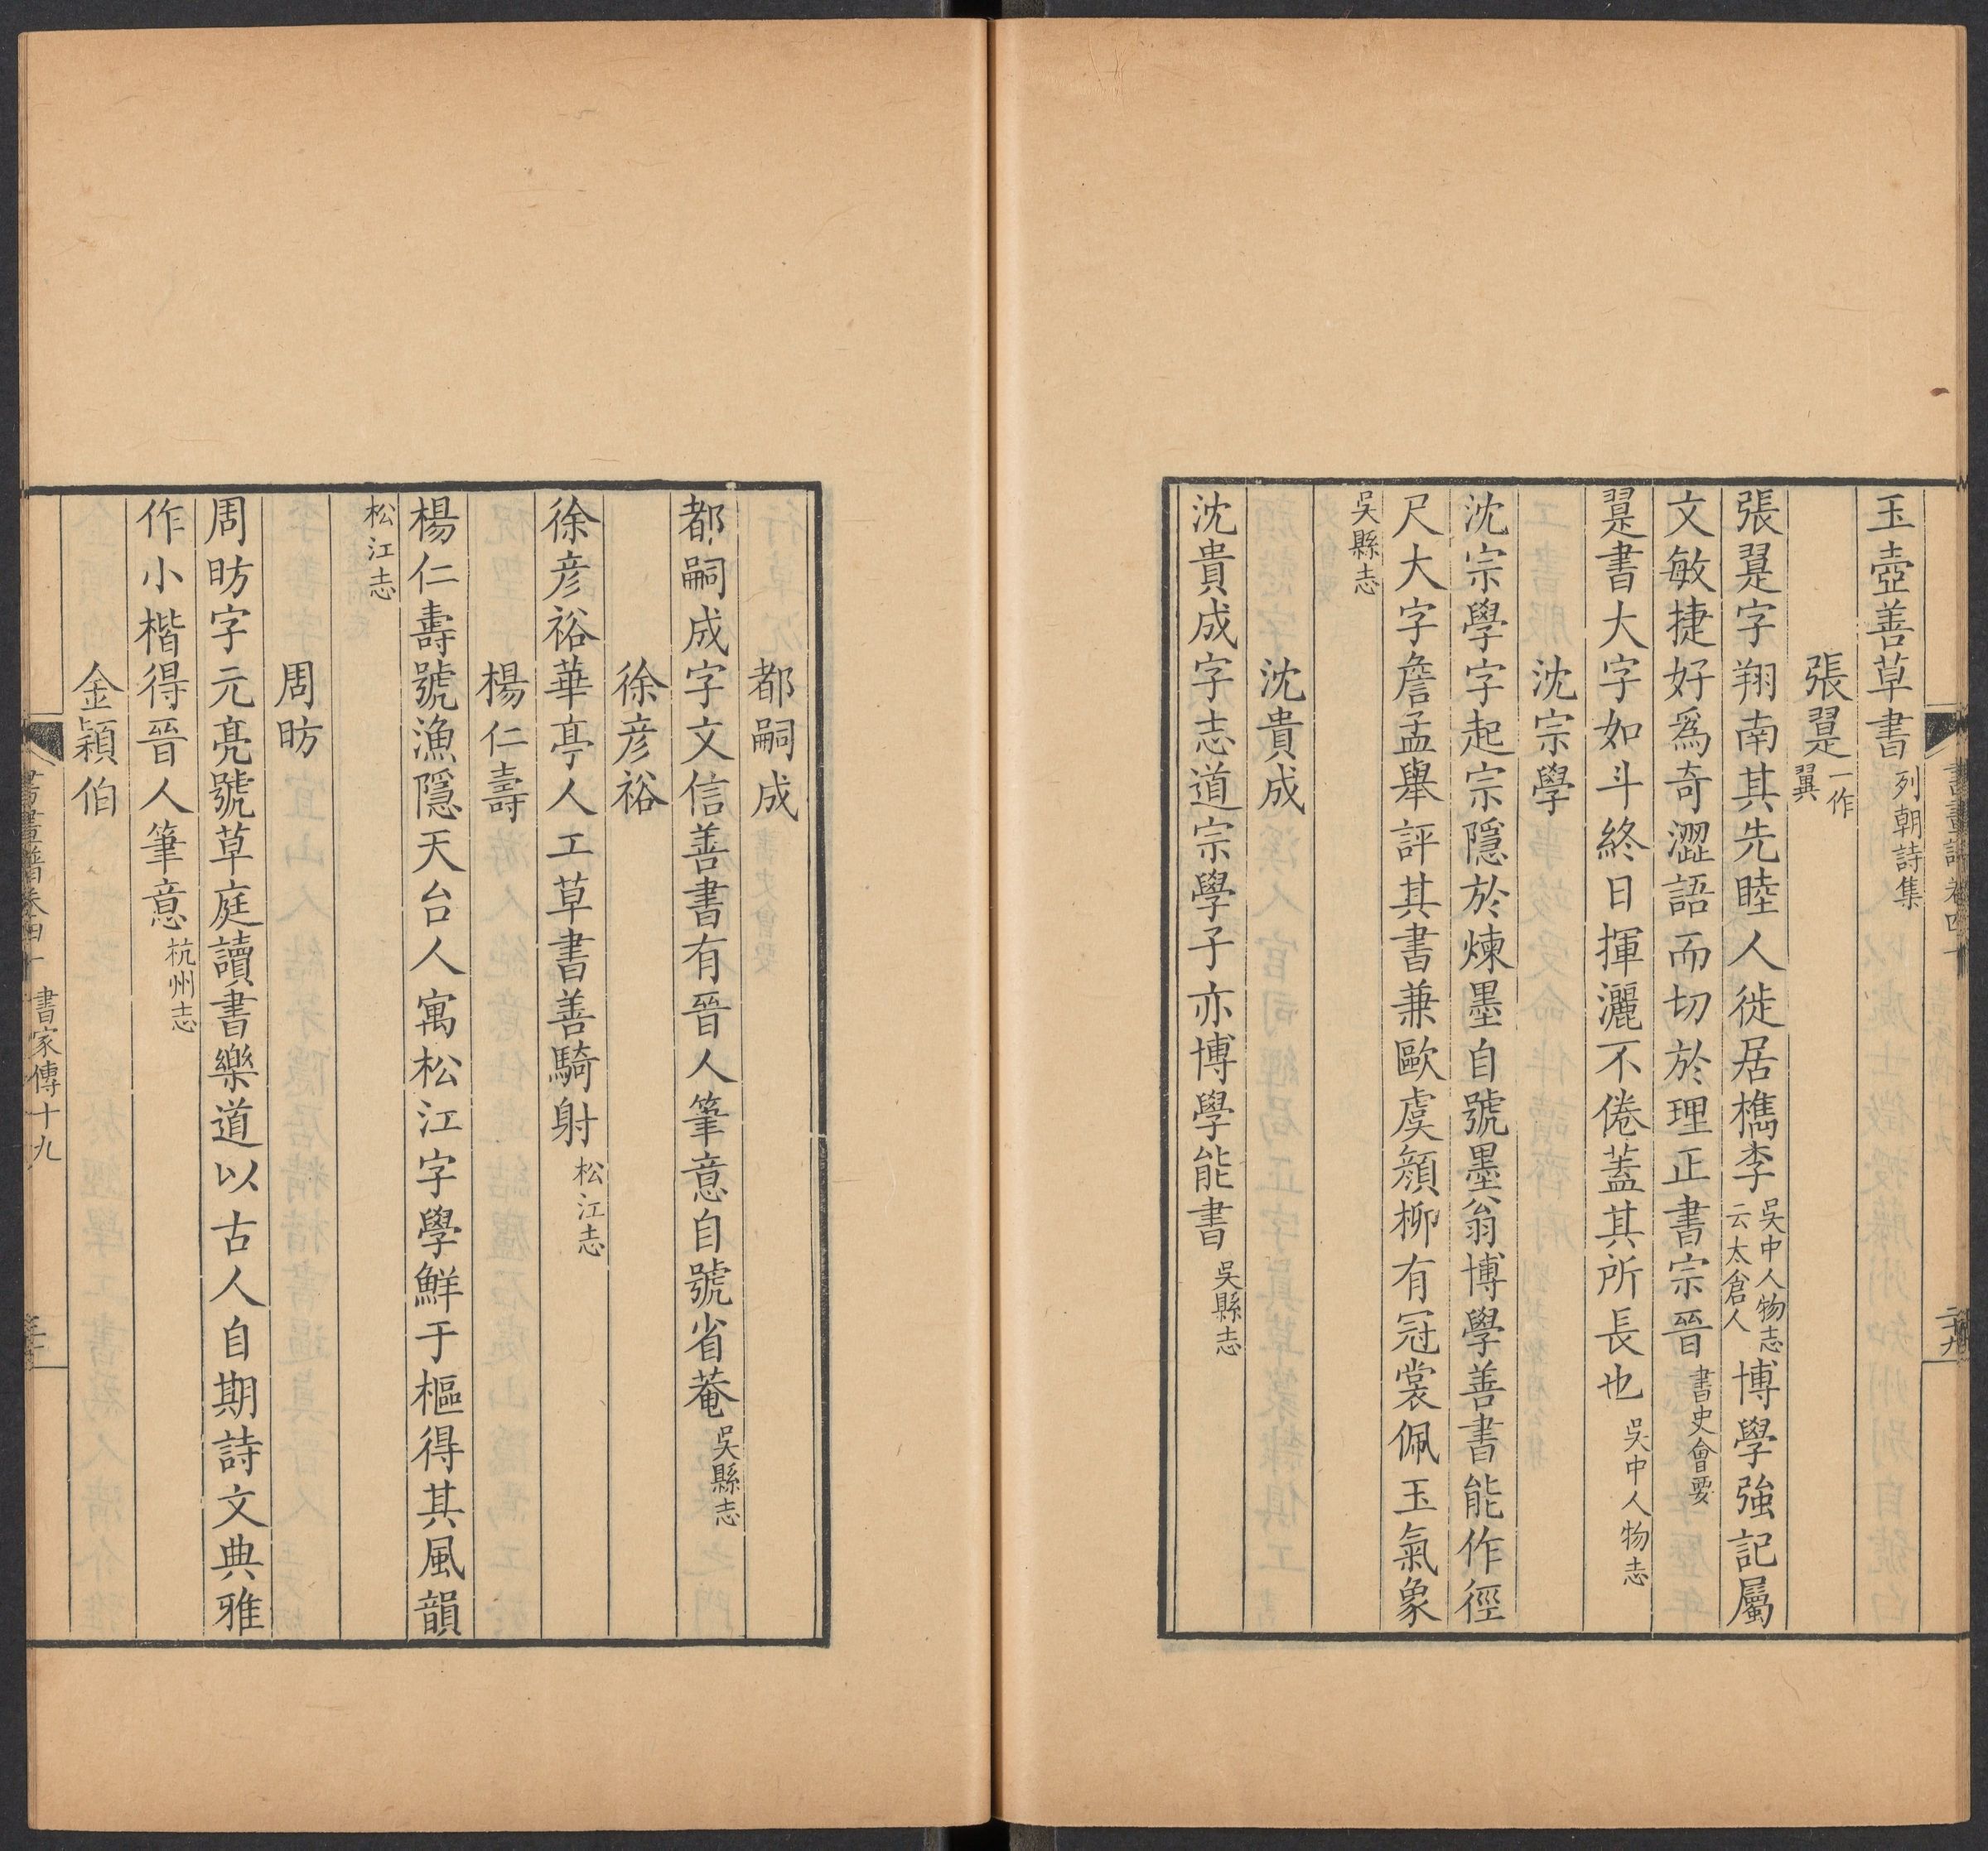 玉壺善草書列朝詩集
張翨一作翼
張翨字翔南其先睦人徙居檇李吳中人物志云太倉人博學強記屬
文敏捷好爲奇澀語而切於理正書宗晉書史會要
翨書大字如斗終日揮灑不倦蓋其所長也吳中人物志
沈宗學
沈宗學字起宗隱於煉墨自號墨翁博學善書能作徑
尺大字詹孟舉評其書兼歐虞顏柳有冠裳佩玉氣象
吳縣志
沈貴成
沈貴成字志道宗學子亦博學能書吳縣志
都嗣成
都嗣成字文信善書有晉人筆意自號省菴吳縣志
徐彥裕
徐彥裕華亭人工草書善騎射松江志
楊仁壽
楊仁壽號漁隱天台人寓松江字學鮮于樞得其風韻
松江志
周昉
周昉字元亮號草庭讀書樂道以古人自期詩文典雅
作小楷得晉人筆意杭州志
金穎伯
書家傳十九